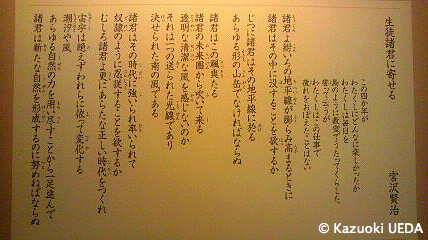 生徒諸君に寄せる
宮沢賢治
この四ヶ年が
わたくしにどんなに楽しかったか
わたくしは毎日を
鳥のように教室でうたってくらした
誓って云うが
わたくしはこの仕事で
疲れをおぼえたことはない
諸君よ紺いろの地平線が膨らみ高まるときに
諸君はその中に没することを欲するか
じつに諸君はその地平線に於る
あらゆる形の山岳でなければならぬ
諸君はこの颯爽たる
諸君の未来圏から吹いて来る
透明な清潔な風を感じないのか
それは一つの送られた光線であり
決せられた南の風である
諸君はその時代に強いられ率いられて
奴隷のように忍従することを欲するか
むしろ諸君よ更にあらたな正しい時代をつくれ
宙宇は絶えずわれらに依って変化する
潮汐や風
あらゆる自然の力を用い尽すことから一足進んで
諸君は新たな自然を形成するのに努めねばならぬ
© Kazuoki UEDA